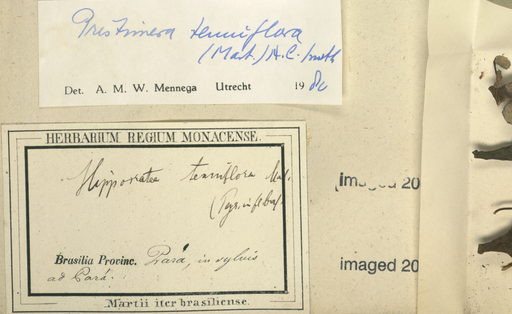 Pristimera tenuiflora
(Mart.) A.C. Smith
Det. A. M. W. Mennega Utrecht 1980
HERBARIUM REGIUM MONACENSE.
Hippocratea tenuiflora Mart.
(Peyr. in fl. bras.
Brasilia Provinc. Pará, in sylvis
ad Pará.
Martii iter brasiliense.
imaged 20
imaged 20